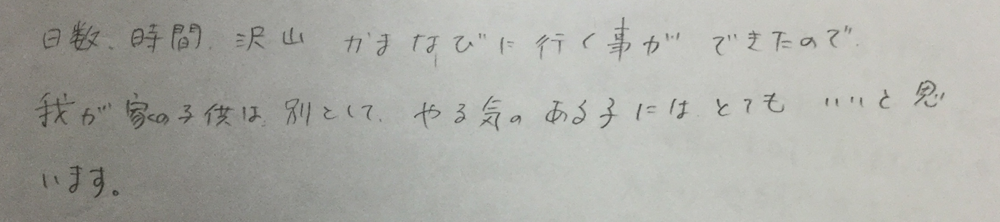 日数、時間、沢山 がまなびに行く事が できたので、
我が家の子供は、別として、やる気の ある子には とても いいと思
います。